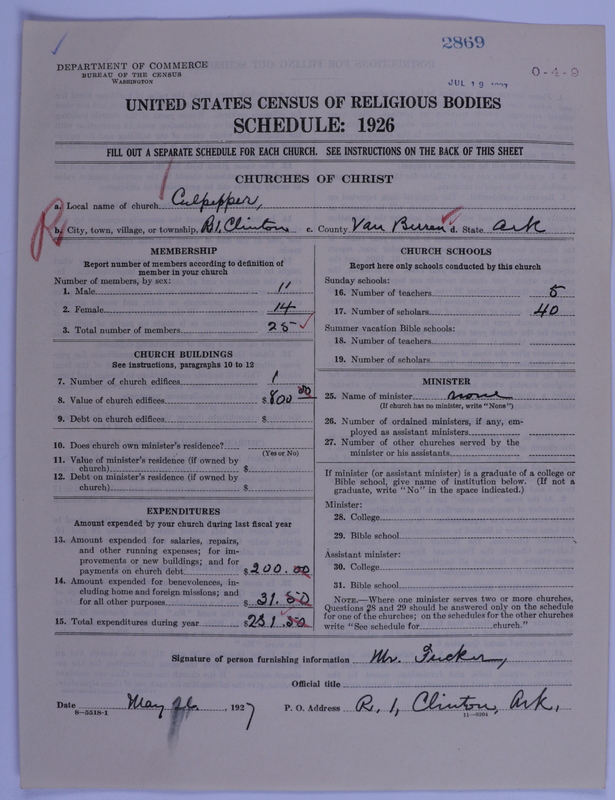 2869
DEPARTMENT OF COMMERCE
BUREAU OF THE CENSUS
WASHINGTON
JUL 19
0-4-9
UNITED STATES CENSUS OF RELIGIOUS BODIES
SCHEDULE: 1926
FILL OUT A SEPARATE SCHEDULE FOR EACH CHURCH. SEE INSTRUCTIONS ON THE BACK OF THIS SHEET
CHURCHES OF CHRIST
a. Local name of church Culpepper,
R b. City, town, village, or township R1, Clinton c. County Van Buren d. State Ark
MEMBERSHIP
Report number of members according to definition of
member in your church
Number of members, by sex:
1. Male 11
2. Female 14
3. Total number of members 25
CHURCH BUILDINGS
See instructions, paragraphs 10 to 12
7. Number of church edifices 1
8. Value of church edifices $800 00
9. Debt on church edifices $
10. Does church own minister's residence?
(Yes or No)
11. Value of minister's residence (if owned by
church) $
12. Debt on minister's residence (if owned by
church) $
EXPENDITURES
Amount expended by your church during last fiscal year
13. Amount expended for salaries, repairs,
and other running expenses; for im-
provements or new buildings; and for
payments on church debt $200.00
14. Amount expended for benevolences, in-
cluding home and foreign missions; and
for all other purposes $31.50
15. Total expenditures during year $231.50
CHURCH SCHOOLS
Report here only schools conducted by this church
Sunday schools:
16. Number of teachers 5
17. Number of scholars 40
Summer vacation Bible schools:
18. Number of teachers
19. Number of scholars
MINISTER
25. Name of minister none
(If church has no minister, write "None")
26. Number of ordained ministers, if any, em-
ployed as assistant ministers
27. Number of other churches served by the
minister or his assistants
If minister (or assistant minister) is a graduate of a college or
Bible school, give name of institution below. (If not a
graduate, write "No" in the space indicated.)
Minister:
28. College
29. Bible school
Assistant minister:
30. College
31. Bible school
NOTE.—Where one minister serves two or more churches,
Questions 28 and 29 should be answered only on the schedule
for one of the churches; on the schedules for the other churches
write "See schedule for church."
Signature of person furnishing information Mr. Tucker,
Official title
Date May 26, 1927 P. O. Address R. 1, Clinton, Ark,
8—5518-1
11—9204